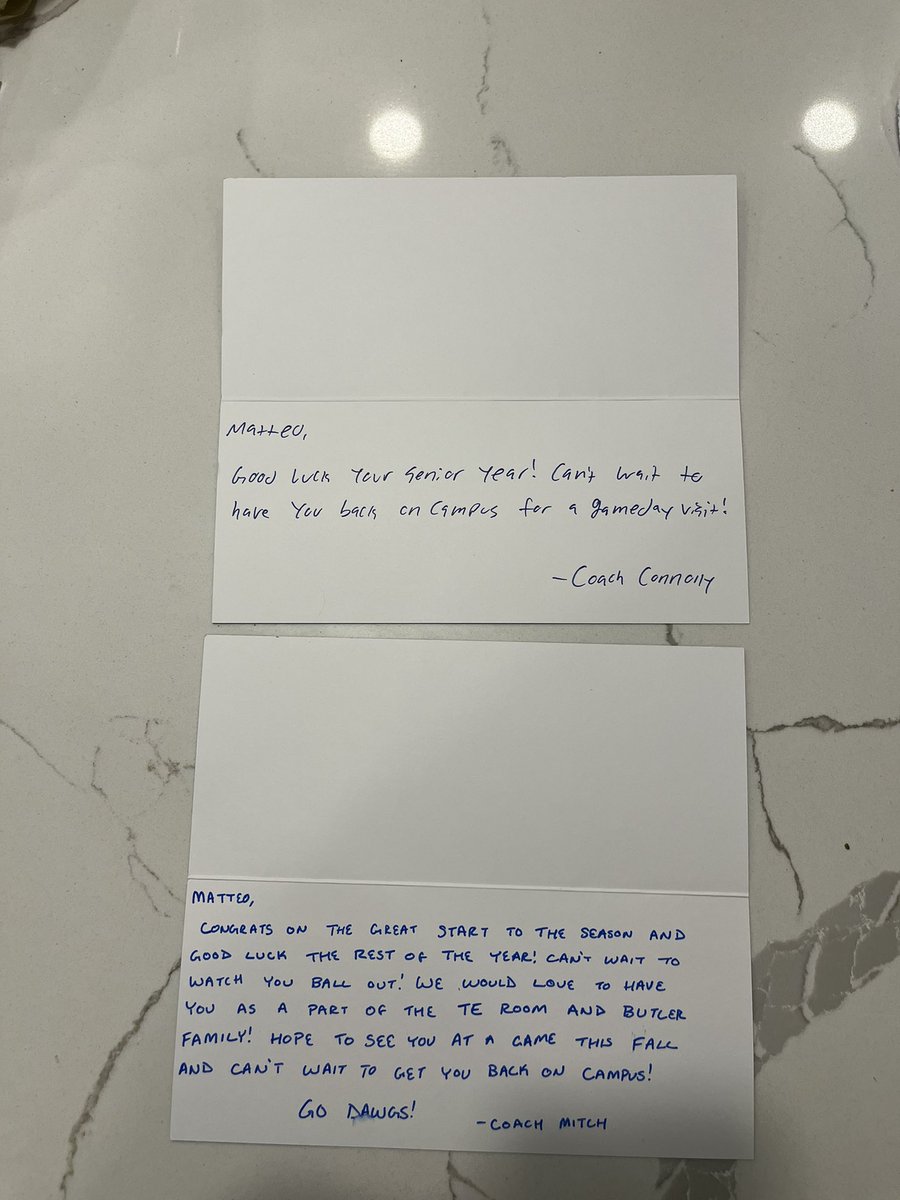 Matteo,
Good luck your senior year! Can't wait to
have you back on campus for a gameday visit!
-Coach Connolly
MATTEO,
CONGRATS ON THE GREAT START TO THE SEASON AND
GOOD LUCK THE REST OF THE YEAR! CAN'T WAIT TO
WATCH YOU BALL OUT! WE WOULD LOVE TO HAVE
YOU AS A PART OF THE TE ROOM AND BUTLER
FAMILY! HOPE TO SEE YOU AT A GAME THIS FALL
AND CAN'T WAIT TO GET YOU BACK ON CAMPUS!
GO DAWGS!
-COACH MITCH